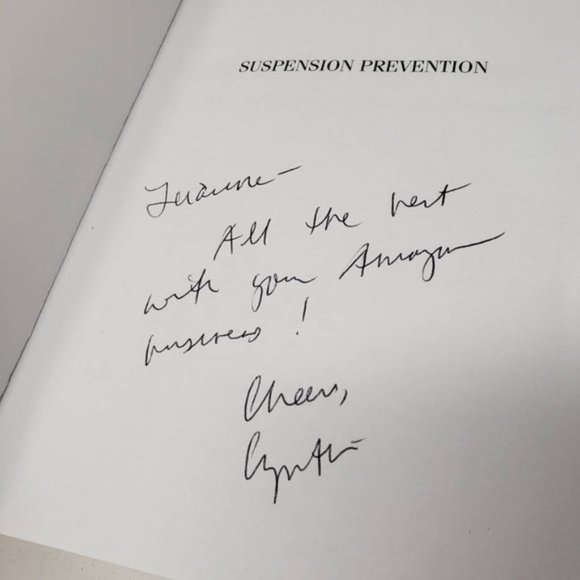 SUSPENSION PREVENTION
All the best
with your Amazon
business!
Cheers,
Cynthia